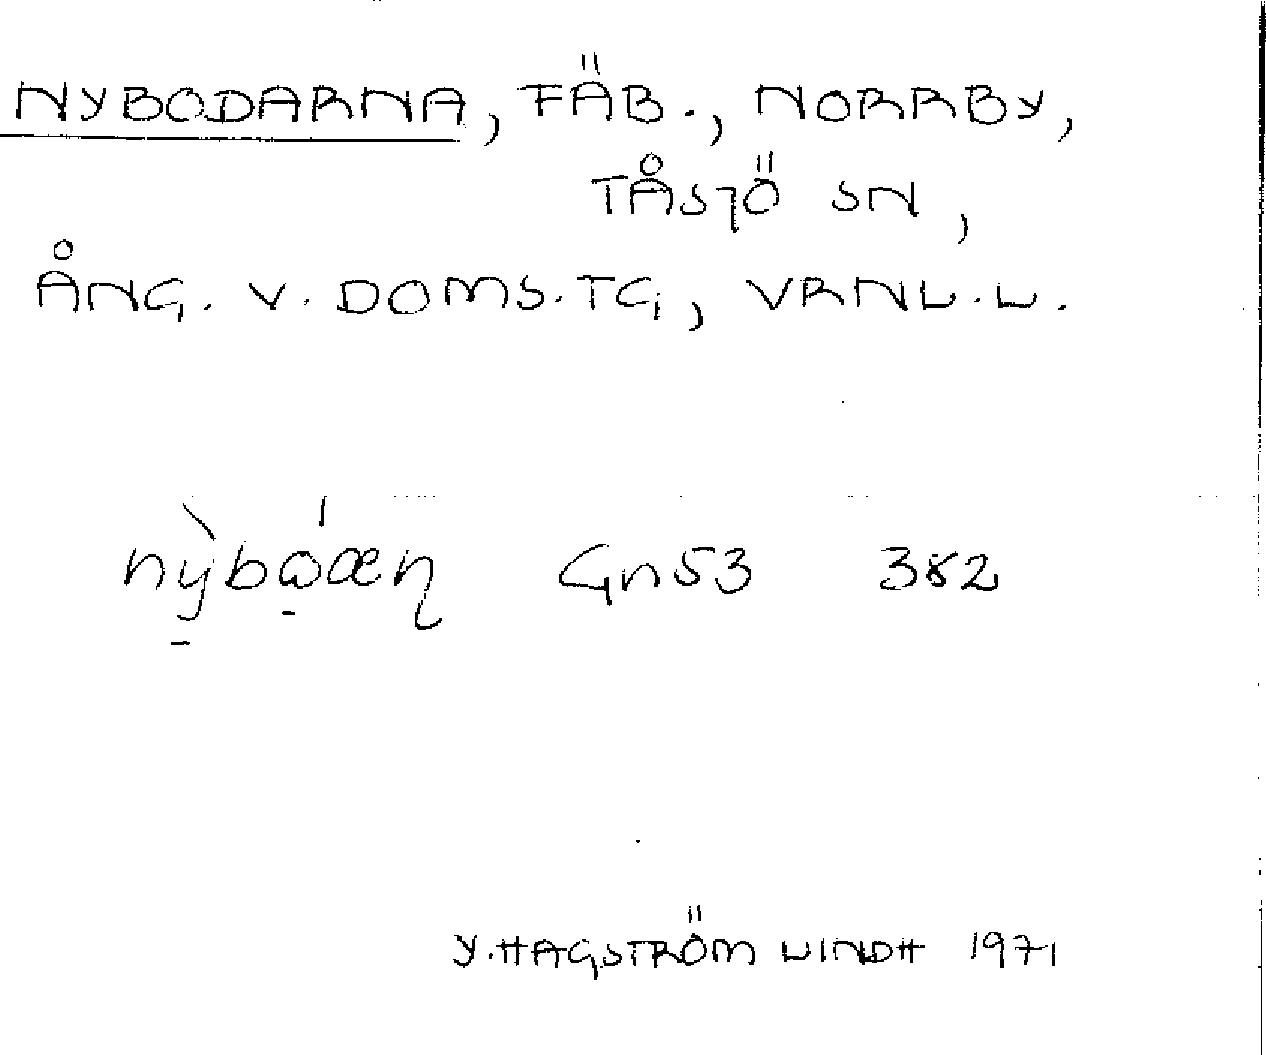 NYBODARNA, FÄB., NORRBY,
TÅSJÖ SN,
ÅNG. V. DOMS. TG, VRNL. L.
Gn53 382
Y. HAGSTRÖM LINDH 1971